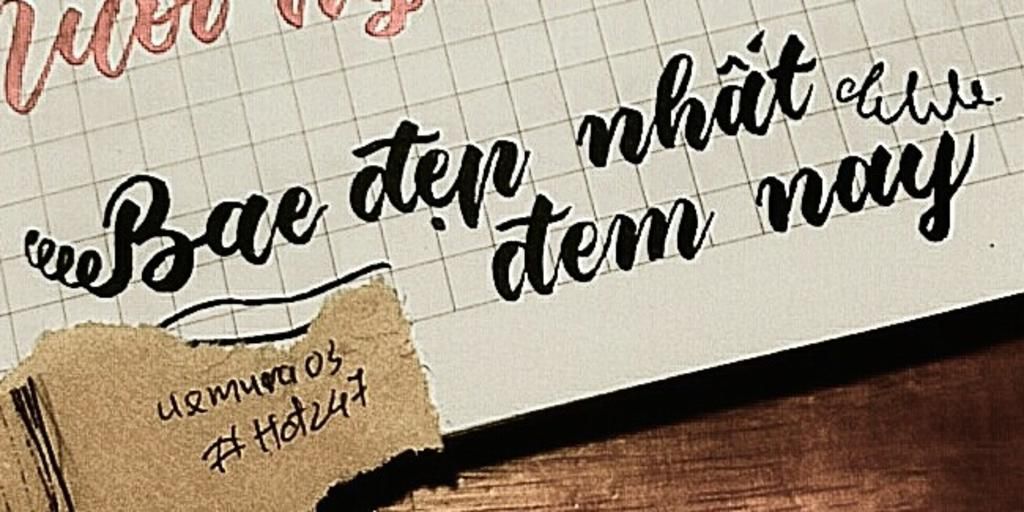 Bae đẹp nhất
đem nay
uemura03
#Hot247